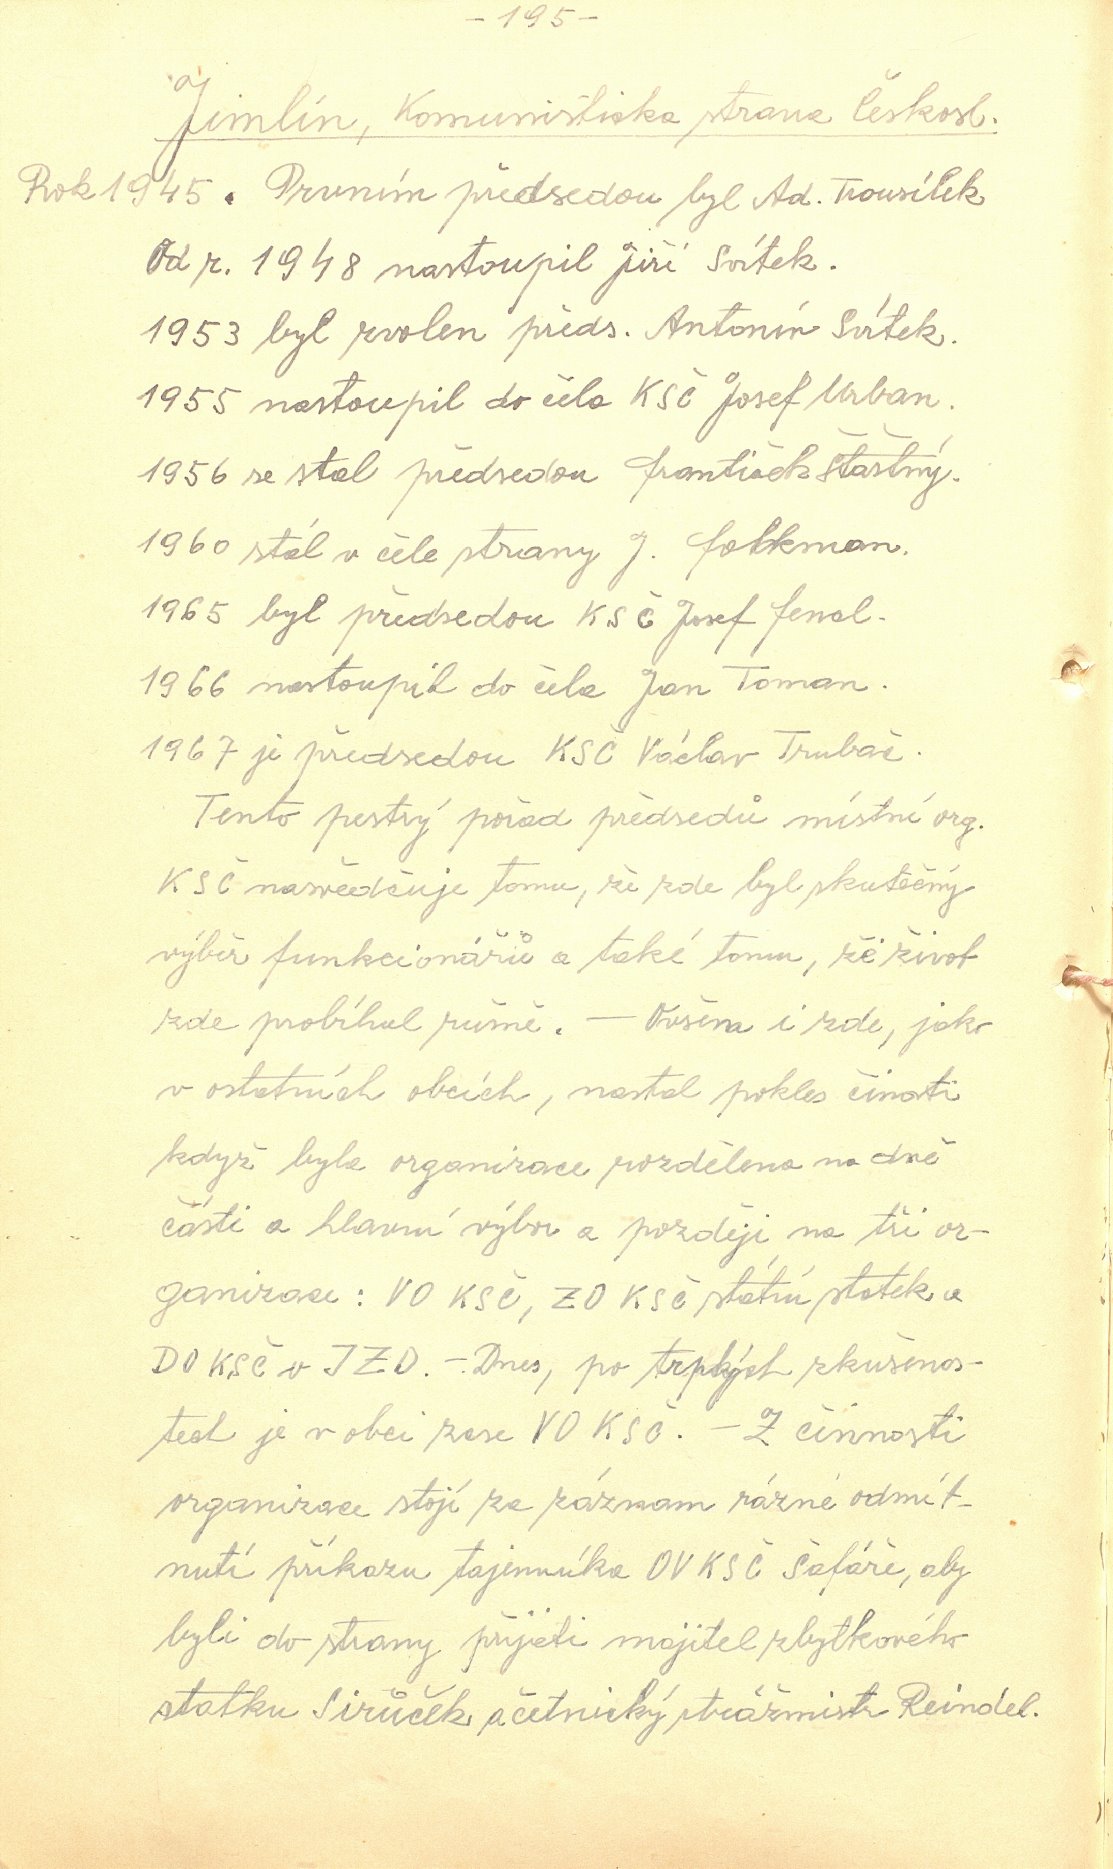 - 195 -
Jimlín, Komunistická strana Českosl.
Rok 1945. Prvním předsedou byl Ad. Trousílek
Od r. 1948 nastoupil Jiří Svítek.
1953 byl zvolen předs. Antonín Svítek.
1955 nastoupil do čela KSČ Josef Urban.
1956 se stal předsedou František Šťastný.
1960 stál v čele strany J. Folkman.
1965 byl předsedou KSČ Josef Fenal.
1966 nastoupil do čela Jan Toman.
1967 je předsedou KSČ Václav Trubač.
Tento pestrý pořad předsedů místní org.
KSČ nasvědčuje tomu, že zde byl skutečný
výběr funkcionářů a také tomu, že život
zde probíhal rušně. — Ovšem i zde, jako
v ostatních obcích, nastal pokles činosti
když byla organizace rozdělena na dvě
části a hlavní výbor a později na tři or-
ganizace: VO KSČ, ZO KSČ státní statek a
DO KSČ v JZD. - Dnes, po trpkých zkušenos-
tech je v obci zase VO KSČ. — Z činnosti
organizace stojí za záznam rázné odmít-
nutí příkazu tajemníka OV KSČ Šafáře, aby
byli do strany přijati majitel zbytkového
statku Sirůček a četnický strážmistr Reindel.